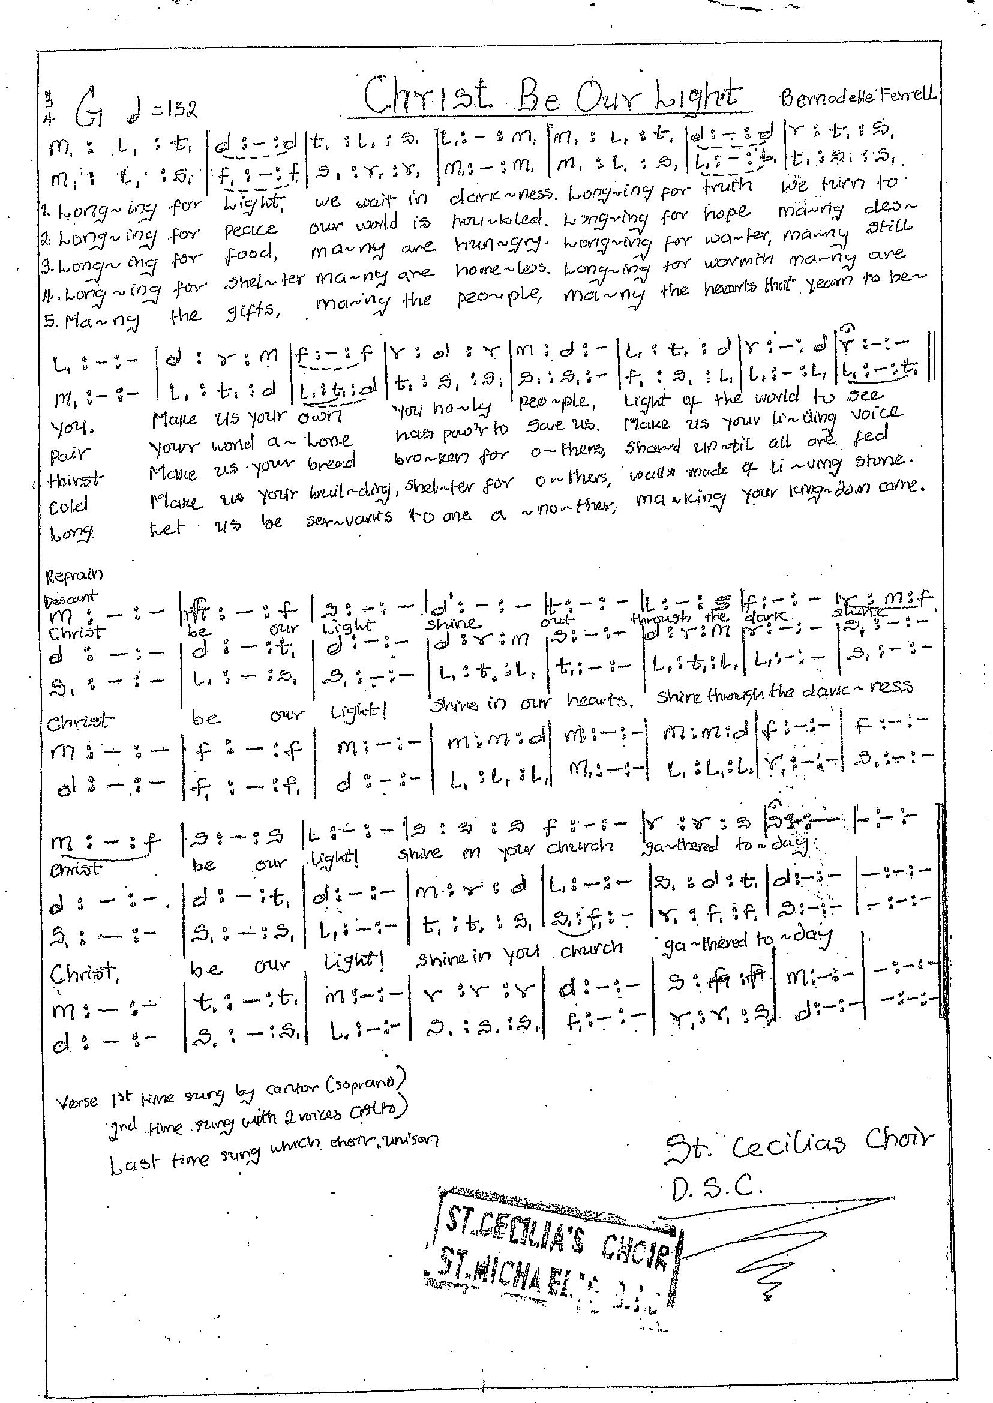 3/4 G d=132 Christ Be Our Light Bernadette Farrell
m, : l, : t, | d : - : d | t, : l, : s, | l, : - : m, | m, : l, : t, | d : - : d | r : t, : s,
m, : l, : s, | f, : - : f, | s, : r, : r, | m, : - : m, | m, : l, : s, | l, : - : l, | t, : s, : s,
1. Long~ing for Light, we wait in dark~ness. Long~ing for truth we turn to
2. Long~ing for peace our world is trou~bled. Long~ing for hope ma~ny des~
3. Long~ing for food, ma~ny are hun~gry. Long~ing for wa~ter, ma~ny still
4. Long~ing for shel~ter ma~ny are home~less. Long~ing for warmth ma~ny are
5. Ma~ny the gifts, ma~ny the peo~ple, ma~ny the hearts that yearn to be~
l, : - : - | d : r : m | f : - : f | r : d : r | m : d : - | l, : t, : d | r : - : d | r : - : -
m, : - : - | l, : t, : d | l, : t, : d | t, : s, : s, | s, : s, : - | f, : s, : l, | l, : - : l, | l, : - : t,
You. Make us your own You ho~ly peo~ple, Light of the world to see
pair Your word a~lone has pow'r to save us. Make us your li~ding voice
thirst Make us your bread bro~ken for o~thers, shared un~til all are fed
Cold Make us your buil~ding, shel~ter for o~thers, walls made of li~ving stone.
Long. Let us be ser~vants to one a~no~ther, ma~king your king~dom come.
Refrain
Descant
m : - : - | f : - : f | s : - : - | d' : - : - | t : - : - | l : - : s | f : - : - | r : m : f
Christ be our Light shine out through the dark shine
d : - : - | d : - : t, | d : - : - | d : r : m | s : - : - | d : r : m | r : - : - | s, : - : -
s, : - : - | l, : - : s, | s, : - : - | l, : t, : l, | t, : - : - | l, : t, : l, | l, : - : - | s, : - : -
Christ be our Light! Shine in our hearts. Shine through the dark~ness
m : - : - | f : - : f | m : - : - | m : m : d | m : - : - | m : m : d | f : - : - | f : - : -
d : - : - | f, : - : f, | d : - : - | l, : l, : l, | m, : - : - | l, : l, : l, | r, : - : - | s, : - : -
m : - : f | s : - : s | l : - : - | s : s : s | f : - : - | r : r : s | s : - : - | - : - : -
Christ be our light! Shine in your church ga~thered to~day.
d : - : - | d : - : t, | d : - : - | m : r : d | l, : - : - | s, : d : t, | d : - : - | - : - : -
s, : - : - | s, : - : s, | l, : - : - | t, : t, : s, | s, : f, : - | r, : f, : f, | s, : - : - | - : - : -
Christ, be our light! Shine in you church ga~thered to~day
m : - : - | t, : - : t, | m : - : - | r : r : r | d : - : - | s : f : f | m : - : - | - : - : -
d : - : - | s, : - : s, | l, : - : - | s, : s, : s, | f, : - : - | r, : r, : s, | d : - : - | - : - : -
Verse 1st time sung by cantor (soprano)
2nd time sung with 2 voices (Alto)
Last time sung which choir, unison
St. Cecilias Choir
D.S.C.
ST.CECILIA'S CHOIR
ST.MICHAEL'S